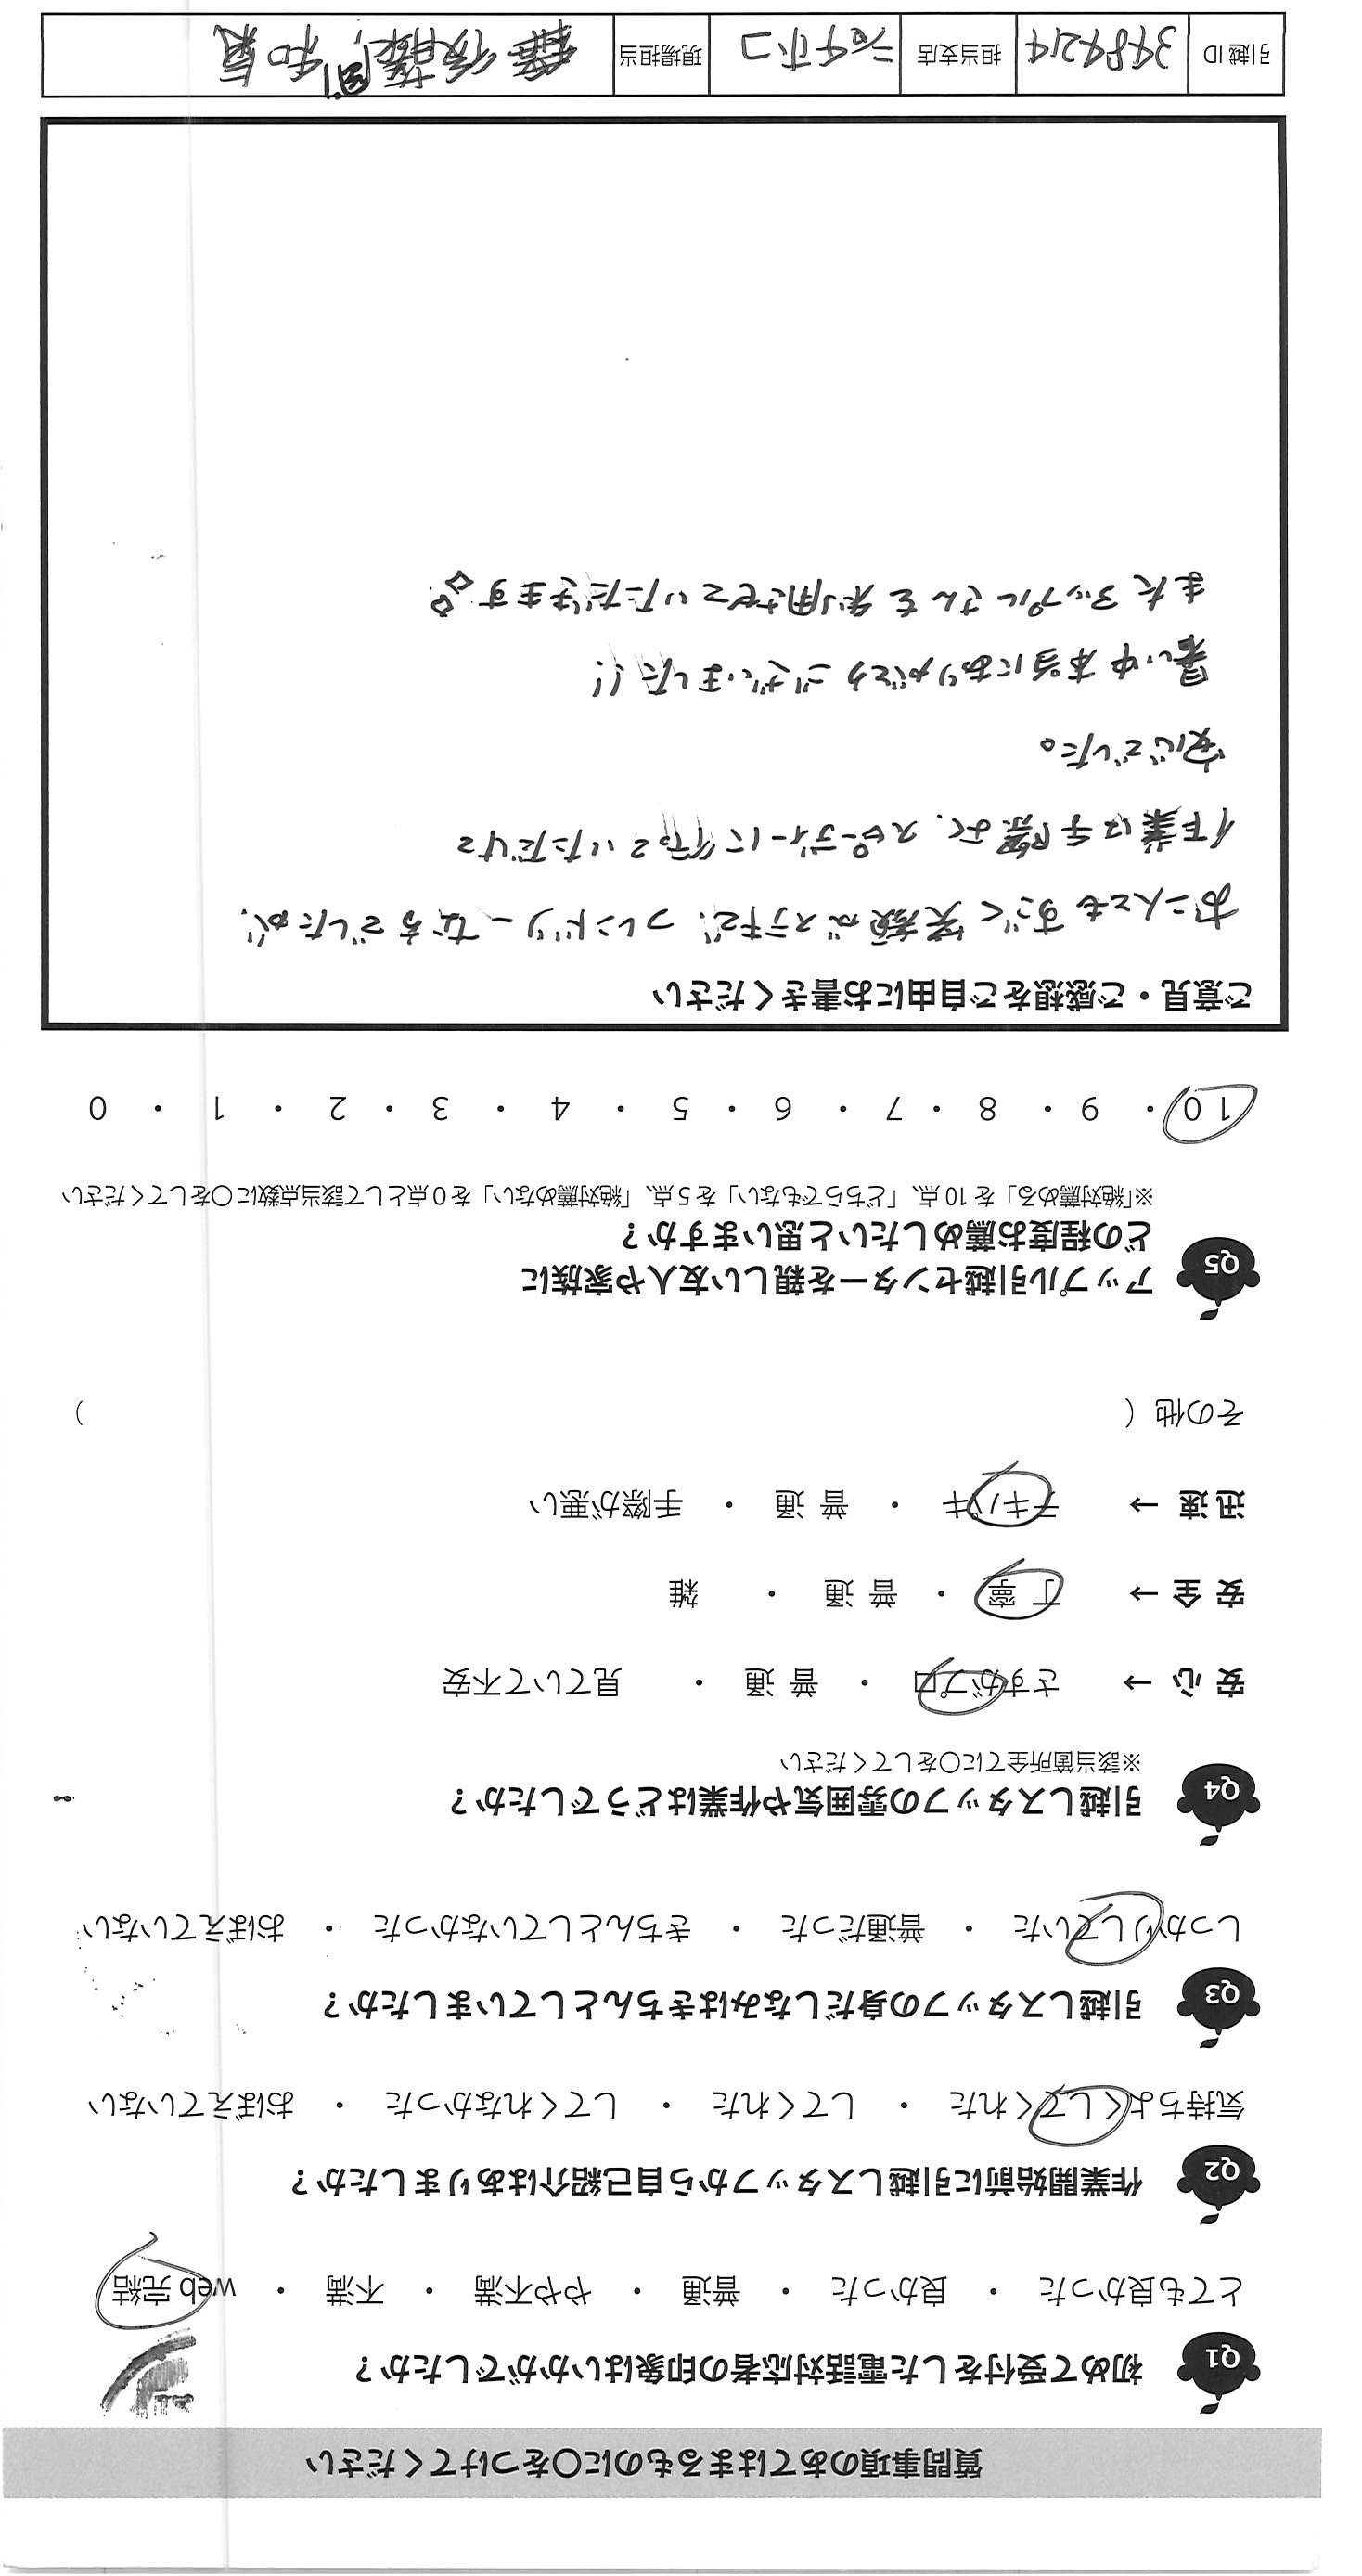 質問事項のあてはまるものに〇をつけてください
Q1 初めて受付をした電話対応者の印象はいかがでしたか？
とても良かった ・ 良かった ・ 普通 ・ やや不満 ・ 不満 ・ web 完結
Q2 作業開始前に引越しスタッフから自己紹介はありましたか？
気持ちよくしてくれた ・ してくれた ・ してくれなかった ・ おぼえていない
Q3 引越しスタッフの身だしなみはきちんとしていましたか？
しっかりしていた ・ 普通だった ・ きちんとしていなかった ・ おぼえていない
Q4 引越しスタッフの雰囲気や作業はどうでしたか？
※該当箇所全てに〇をしてください
安 心 → さすがプロ ・ 普 通 ・ 見ていて不安
安 全 → 丁 寧 ・ 普 通 ・ 雑
迅 速 → テキパキ ・ 普 通 ・ 手際が悪い
その他（ ）
Q5 アップル引越センターを親しい友人や家族に
どの程度お薦めしたいと思いますか？
※「絶対薦める」を 10 点、「どちらでもない」を 5 点、「絶対薦めない」を 0 点として該当点数に〇をしてください
10 ・ 9 ・ 8 ・ 7 ・ 6 ・ 5 ・ 4 ・ 3 ・ 2 ・ 1 ・ 0
ご意見・ご感想をご自由にお書きください
お二人ともすごく笑顔がステキで、フレンドリーな方でしたが、
作業は手際よく、スピーディーに行っていただけて
安心でした。
暑い中本当にありがとうございました!!
またアップルさんを利用させていただきます
引越 ID 3484214 担当支店 シチホコ 現場担当 後藤 和真